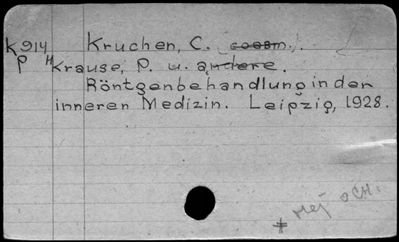 K914 Kruchen, C.
P H Krause, P. u. andere.
Röntgenbehandlung in der
inneren Medizin. Leipzig, 1928.